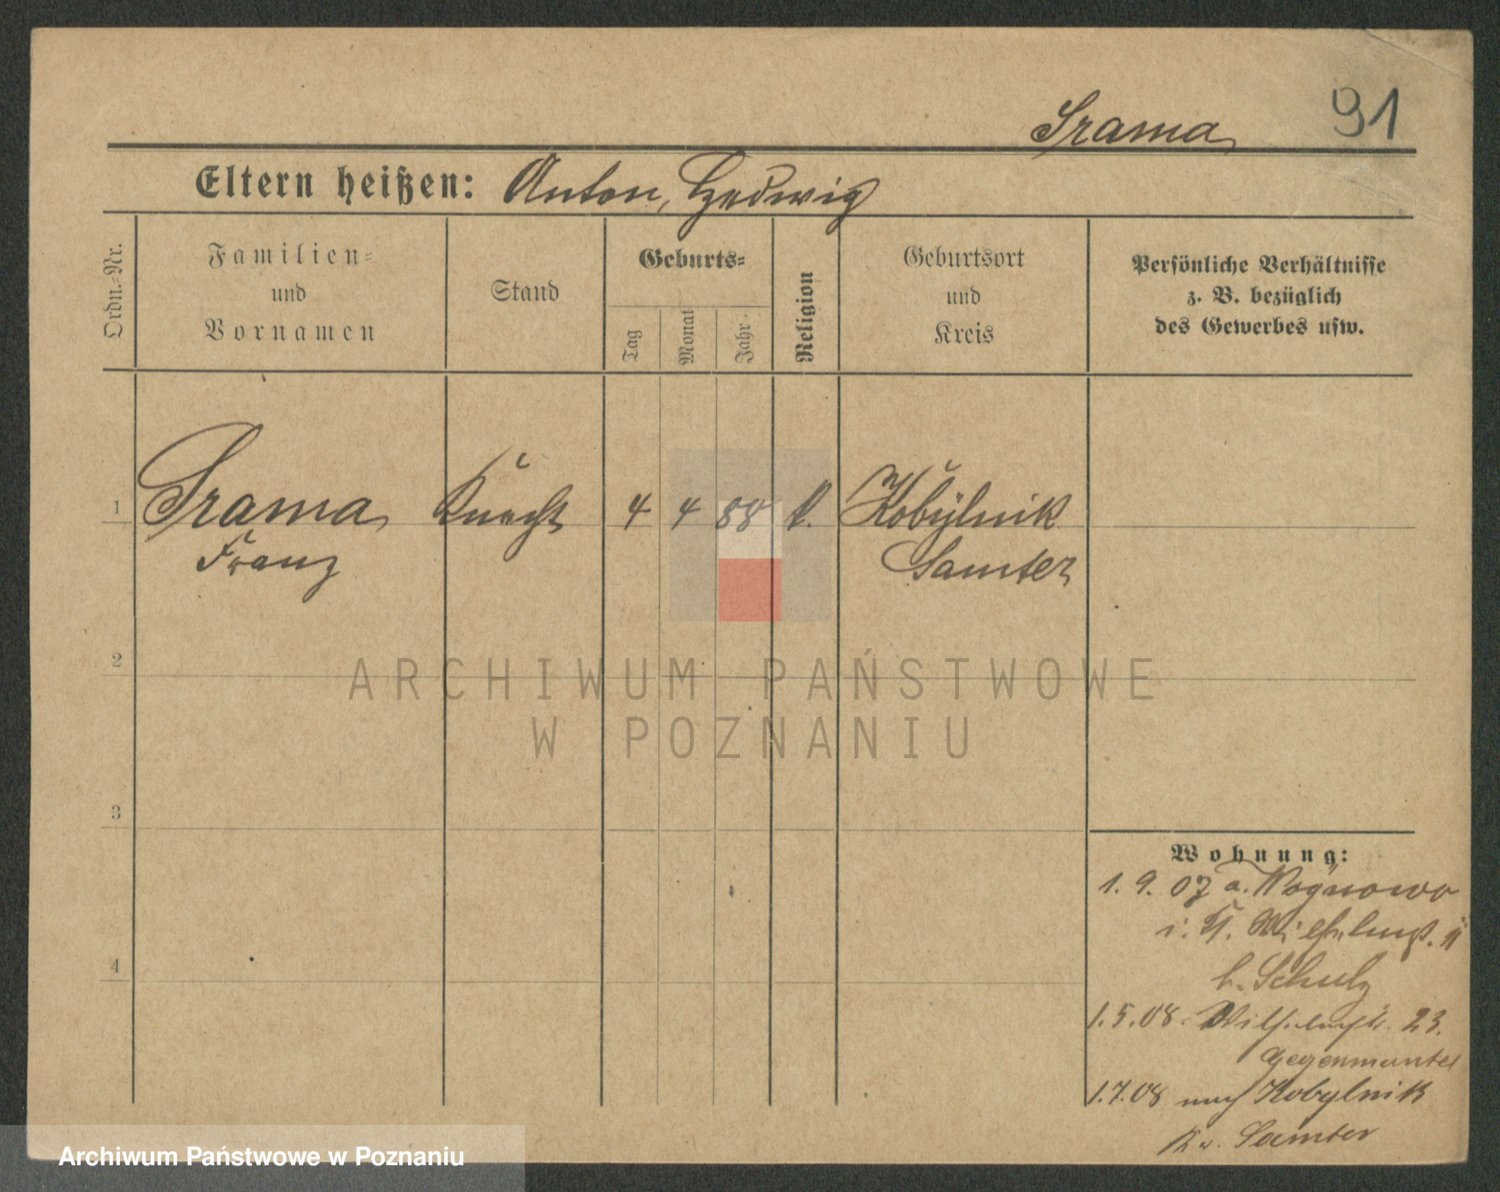 91
Srama
Eltern heißen: Anton, Hedwig
Ordn.-Nr.
Familien-
und
Vornamen
Stand
Geburts-
Tag
Monat
Jahr
Religion
Geburtsort
und
Kreis
Persönliche Verhältnisse
z. B. bezüglich
des Gewerbes usw.
1 Srama Knecht 4 4 88 k. Kobylnik
Franz Samter
2
3
4
Wohnung:
1. 9. 07 a.
h. Schulz
1.5.08. Wilhelmstr. 23.
1.7.08 nach Kobylnik
Kr. Samter
ARCHIWUM PAŃSTWOWE
W POZNANIU
Archiwum Państwowe w Poznaniu